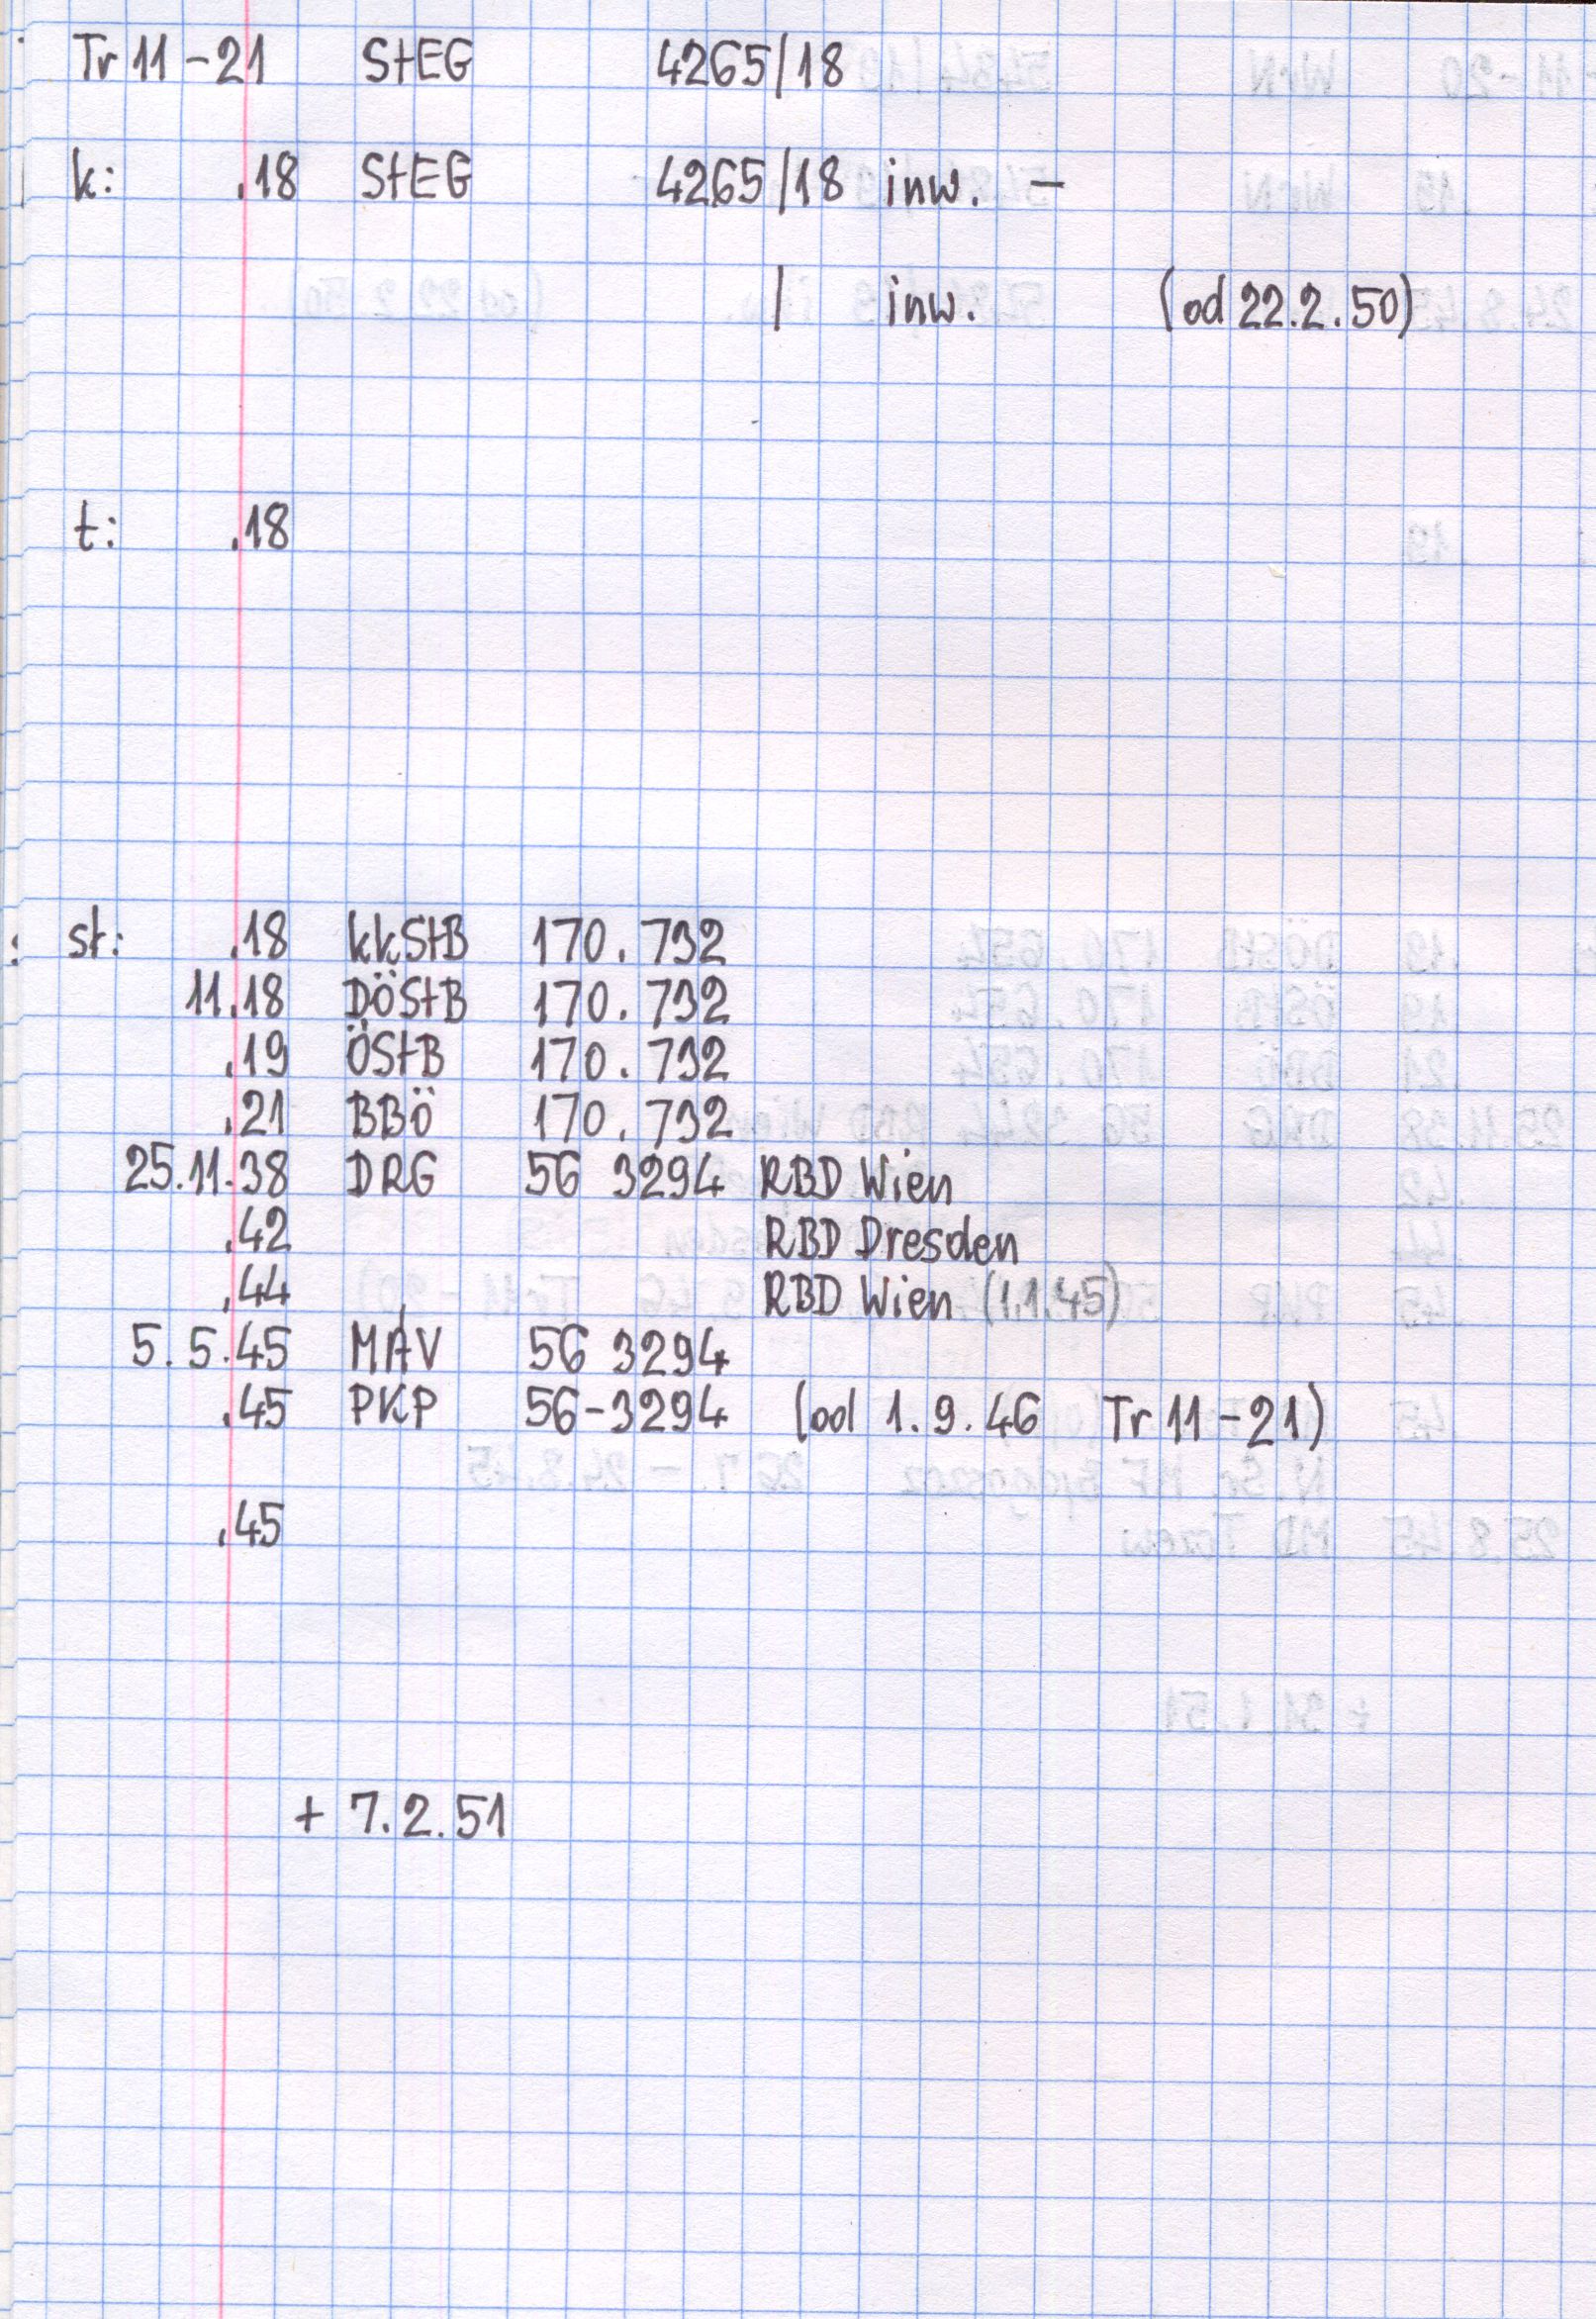 Tr 11-21 StEG 4265/18
k: .18 StEG 4265/18 inw. -
/ inw. (od 22.2.50)
t: .18
st: .18 kkStB 170.732
11.18 DÖStB 170.732
.19 ÖStB 170.732
.21 BBÖ 170.732
25.11.38 DRG 56 3294 RBD Wien
.42 RBD Dresden
.44 RBD Wien (1.1.45)
5.5.45 MÁV 56 3294
.45 PKP 56-3294 (od 1.9.46 Tr 11-21)
.45
+ 7.2.51